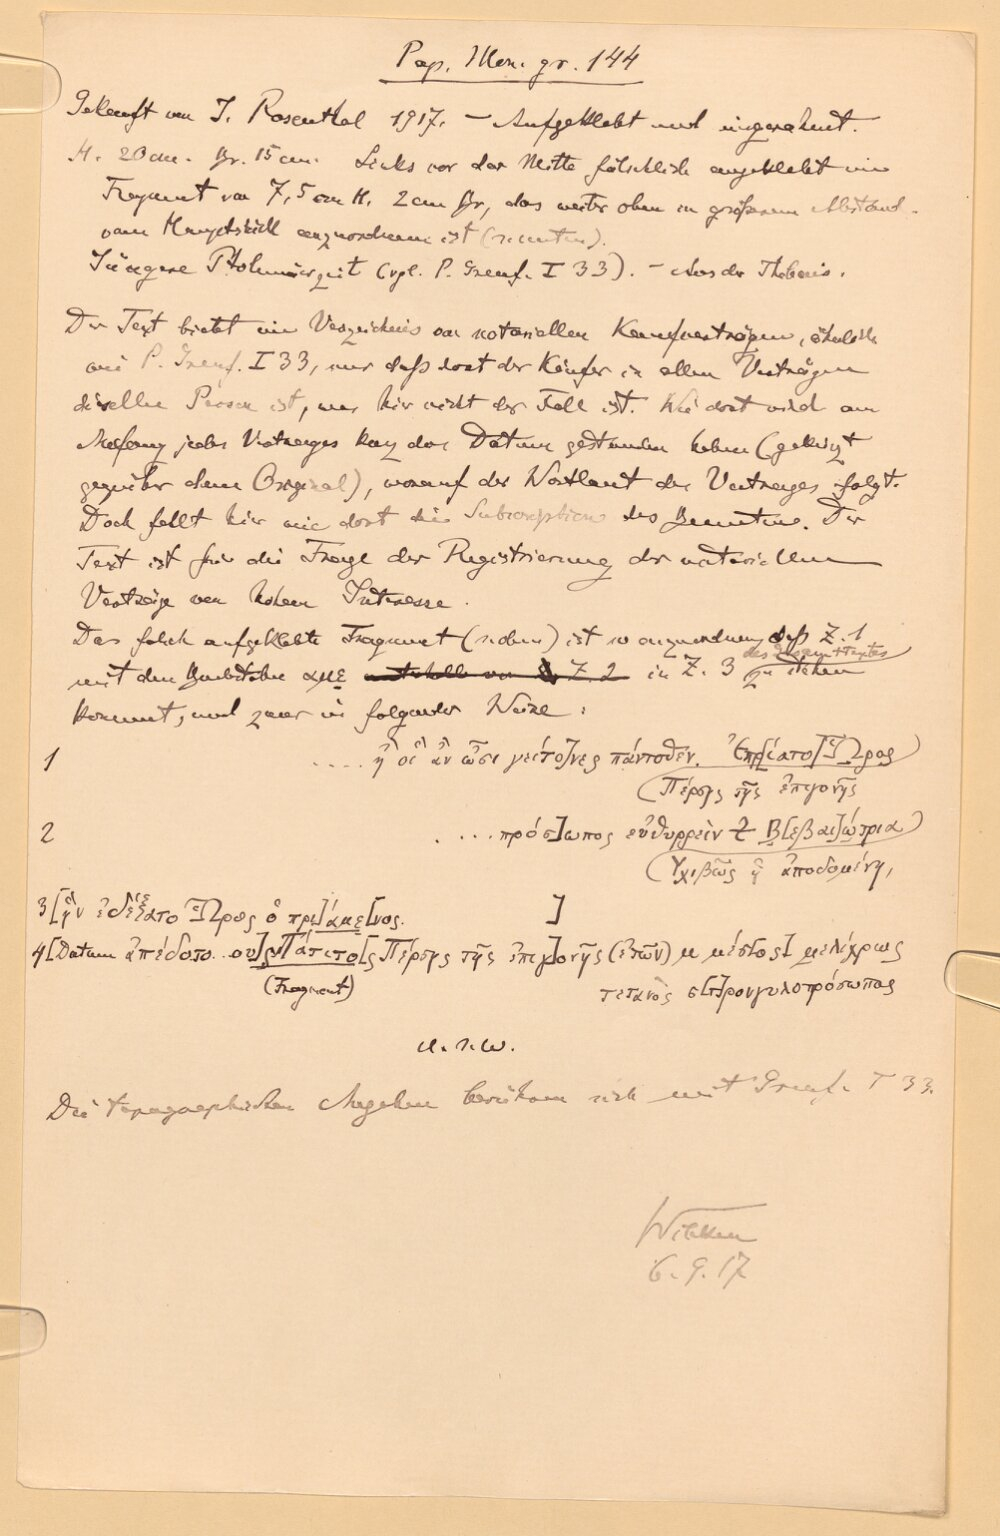 Pap. Mon. gr. 144
Gekauft von J. Rosenthal 1917. – Aufgeklebt und eingerahmt.
H. 20 cm. Br. 15 cm. Links vor der Mitte fälschlich angeklebt ein
Fragment von 7,5 cm H. 2 cm Br., das weiter oben in größerem Abstand
vom Hauptstück anzuordnen ist
Jüngere Ptolemäerzeit (vgl. P. Grenf. I 33). – Aus der Thebais.
Der Text bietet ein Verzeichnis von notariellen Kaufverträgen, ähnlich
wie P. Grenf. I 33, nur daß dort der Käufer in allen Verträgen
dieselbe Person ist, was hier nicht der Fall ist. Wie dort wird am
Anfang jedes Vertrages kurz das Datum gestanden haben (gekürzt
gegenüber dem Original), worauf der Wortlaut des Vertrages folgt.
Doch fehlt hier wie dort die Subscription des Beamten. Der
Text ist für die Frage der Registrierung der notariellen
Verträge von hohem Interesse.
Das falsch aufgeklebte Fragment ist so anzuordnen, daß Z. 1
mit den Buchstaben αμε in Z. 3 des Gesamttextes zu stehen
kommt, und zwar in folgender Weise:
1 .... ἢ οἳ ἂν ὦσι γείτο]νες πάντοθεν. Ἐπρίατο] Ὧρος
(Πέρσης τῆς ἐπιγονῆς
2 ...πρόσ]ωπος εὐθύρρειν Β[εβαι]ώτρια
(Ὑχιβῶς ἡ ἀποδομένη,
3 [ἣν ἐδέξατο Ὧρος ὁ πρι]άμε[νος. ]
4 [Datum ἀπέδοτο .. ου]ς Πάτιτο[ς Πέρσης τῆς ἐπιγ]ονῆς (ἐτῶν) μ μέσ[ος] μελίχρως
(Fragment) τετανὸς σ[τ]ρονγυλοπρόσωπος
u.s.w.
Die topographischen Angaben berühren sich mit Grenf. I 33.
Wilcken
6.9.17